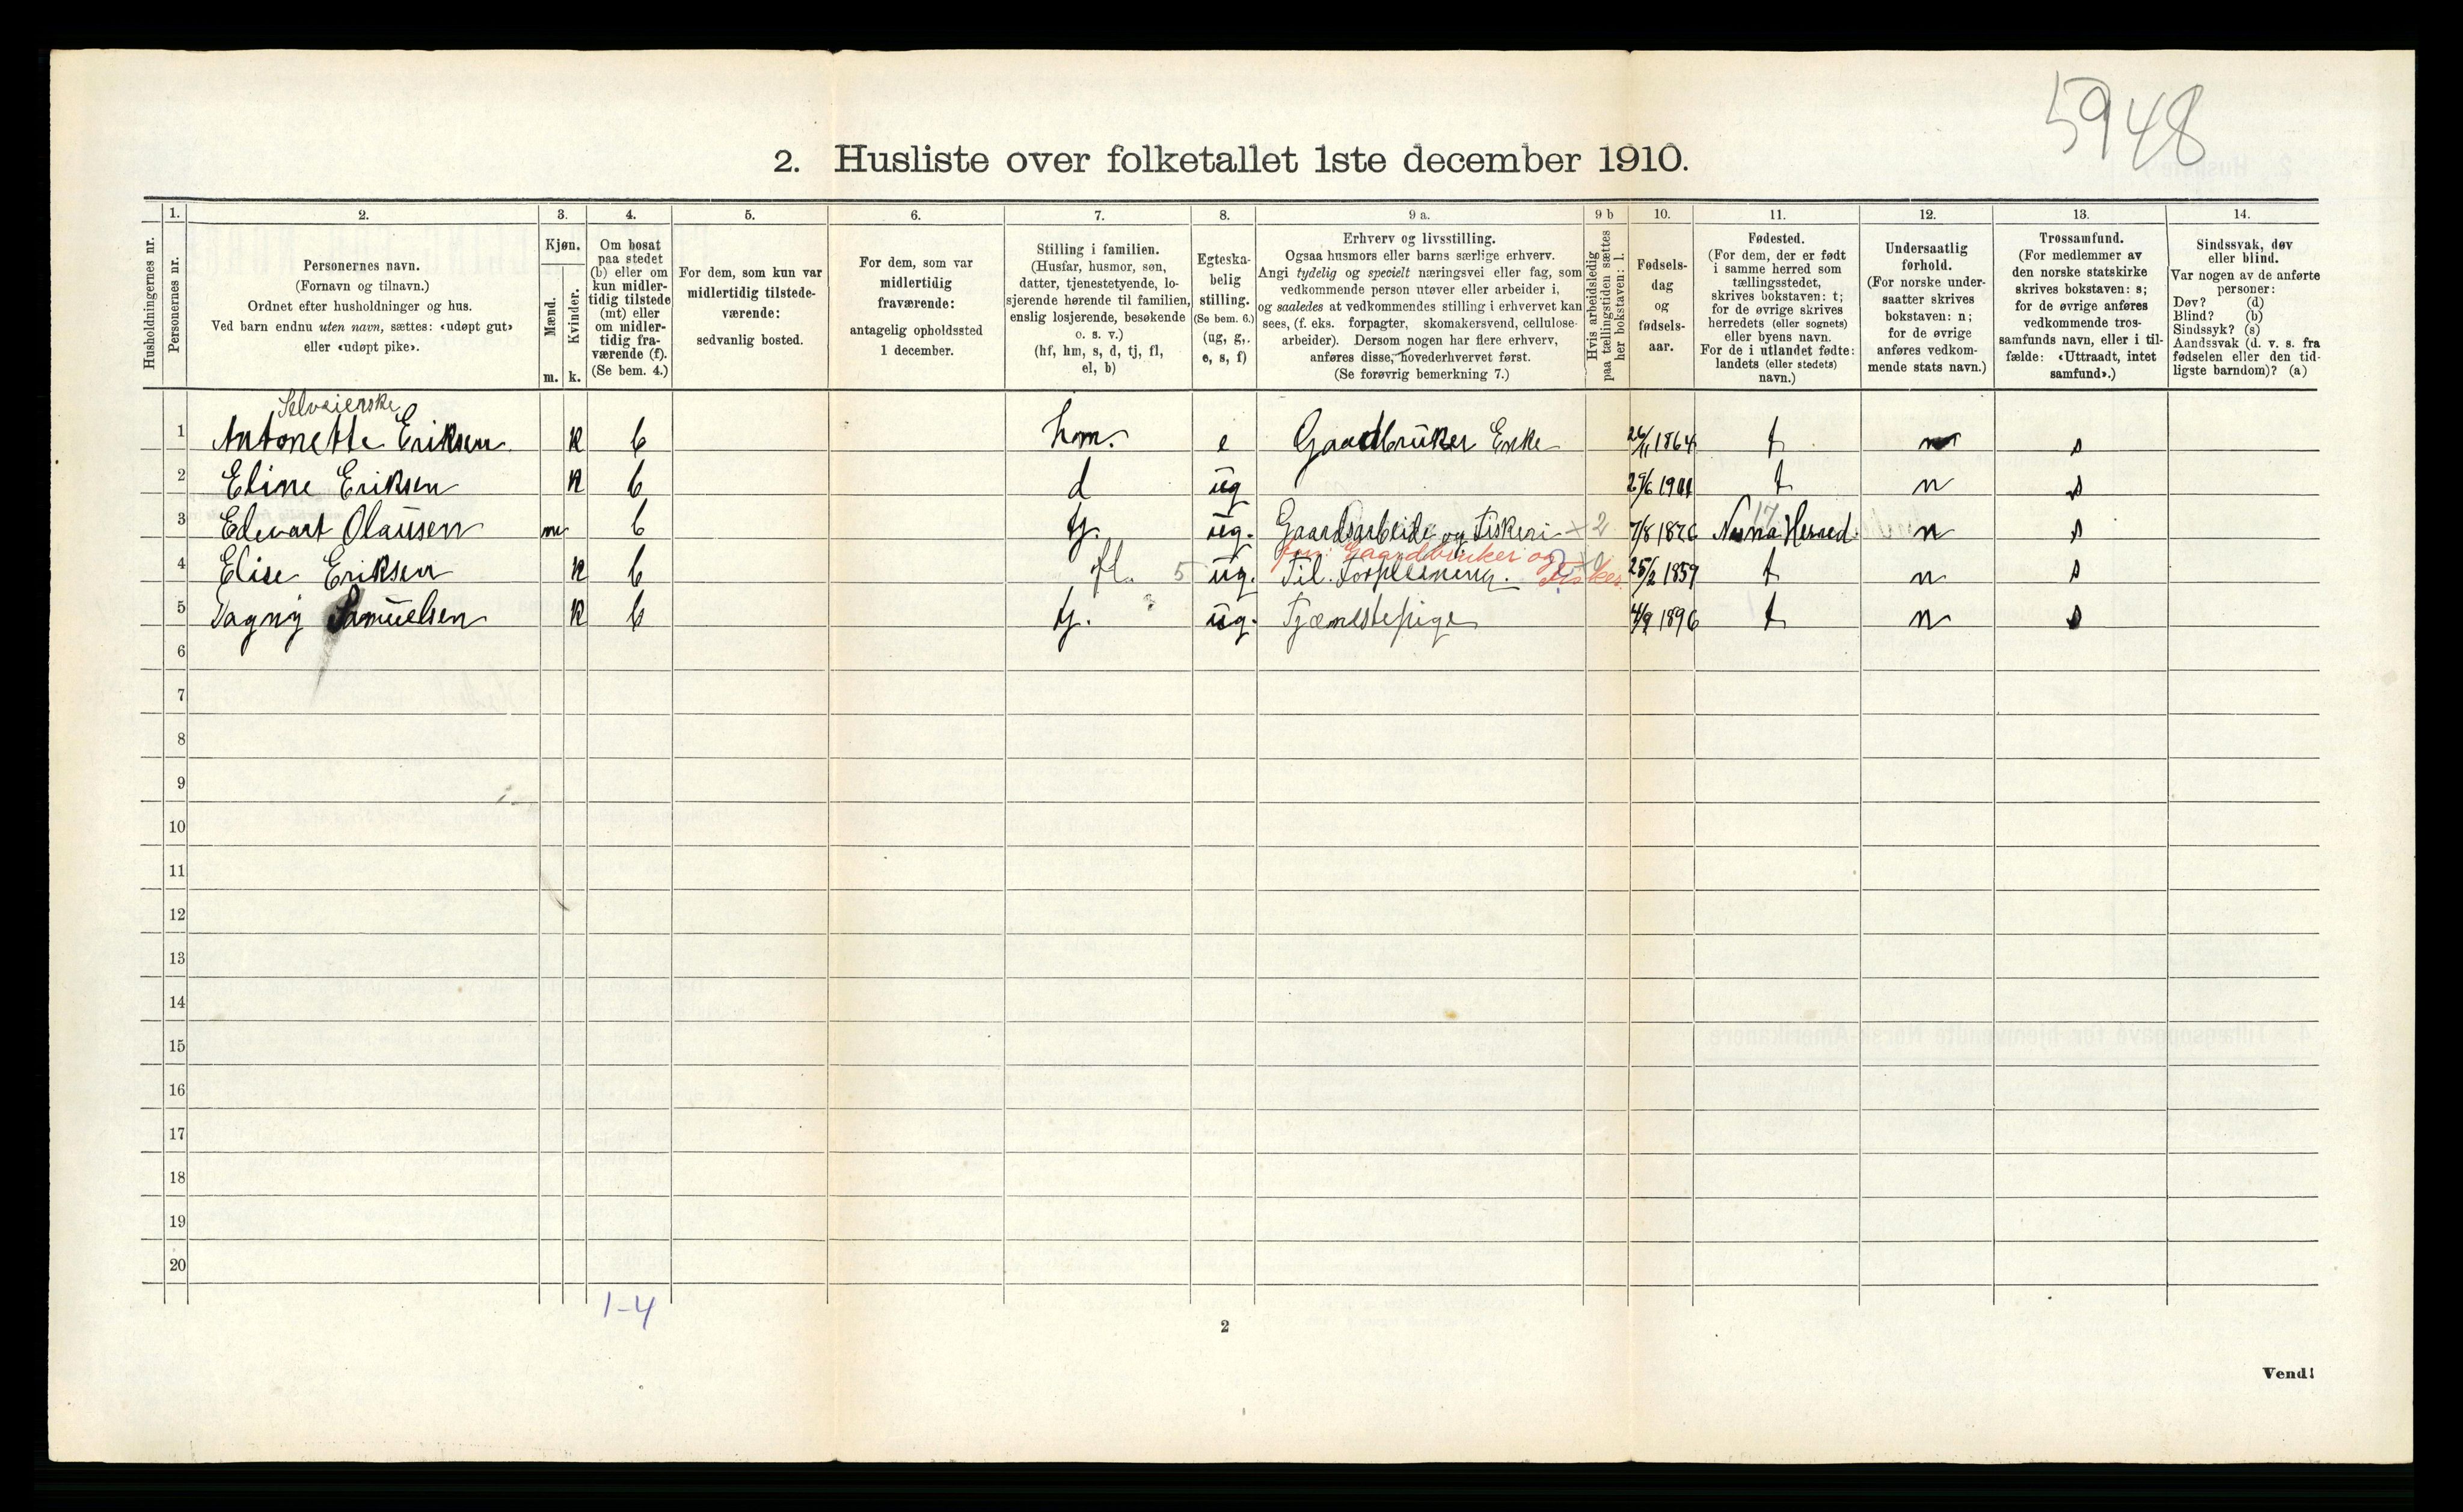 5948
2. Husliste over folketallet 1ste december 1910.
Husholdningernes nr.
1.
Personernes nr.
2.
Personernes navn.
(Fornavn og tilnavn.)
Ordnet efter husholdninger og hus.
Ved barn endnu uten navn, sættes: «udøpt gut»
eller «udøpt pike».
3.
Kjøn.
Mænd.
Kvinder.
m. k.
4.
Om bosat
paa stedet
(b) eller om
kun midler-
tidig tilstede
(mt) eller
om midler-
tidig fra-
værende (f).
(Se bem. 4.)
5.
For dem, som kun var
midlertidig tilstede-
værende:
sedvanlig bosted.
6.
For dem, som var
midlertidig
fraværende:
antagelig opholdssted
1 december.
7.
Stilling i familien.
(Husfar, husmor, søn,
datter, tjenestetyende, lo-
sjerende hørende til familien,
enslig losjerende, besøkende
o. s. v.)
(hf, hm, s, d, tj, fl,
el, b)
8.
Egteska-
belig
stilling.
(Se bem. 6.)
(ug, g,
e, s, f)
9 a.
Erhverv og livsstilling.
Ogsaa husmors eller barns særlige erhverv.
Angi tydelig og specielt næringsvei eller fag, som
vedkommende person utøver eller arbeider i,
og saaledes at vedkommendes stilling i erhvervet kan
sees, (f. eks. forpagter, skomakersvend, cellulose-
arbeider). Dersom nogen har flere erhverv,
anføres disse, hovederhvervet først.
(Se forøvrig bemerkning 7.)
9 b
Hvis arbeidsledig
paa tællingstiden sættes
her bokstaven: l.
10.
Fødsels-
dag
og
fødsels-
aar.
11.
Fødested.
(For dem, der er født
i samme herred som
tællingsstedet,
skrives bokstaven: t;
for de øvrige skrives
herredets (eller sognets)
eller byens navn.
For de i utlandet fødte:
landets (eller stedets)
navn.)
12.
Undersaatlig
forhold.
(For norske under-
saatter skrives
bokstaven: n;
for de øvrige
anføres vedkom-
mende stats navn.)
13.
Trossamfund.
(For medlemmer av
den norske statskirke
skrives bokstaven: s;
for de øvrige anføres
vedkommende tros-
samfunds navn, eller i til-
fælde: «Uttraadt, intet
samfund».)
14.
Sindssvak, døv
eller blind.
Var nogen av de anførte
personer:
Døv? (d)
Blind? (b)
Sindssyk? (s)
Aandssvak (d. v. s. fra
fødselen eller den tid-
ligste barndom)? (a)
Selveierske
1 Antonette Eriksen k b hm. e Gaardbruker Enke 26/11 1864 t n s
2 Eline Eriksen k b d ug 29/6 1901 t n s
3 Edvart Olausen m b tj. ug. Gaardsarbeide og Fiskeri × 2 7/8 1876 Herred 17 n s
Gaardbruker og Fisker
4 Elise Eriksen k b fl. 5 ug. Til Forpleining. 25/2 1859 t n s
5 Dagny Samuelsen k b tj. ug. Tjænestepige 4/9 1896 t n s
6
7
8
9
10
11
12
13
14
15
16
17
18
19
20
1-4
2
Vend!